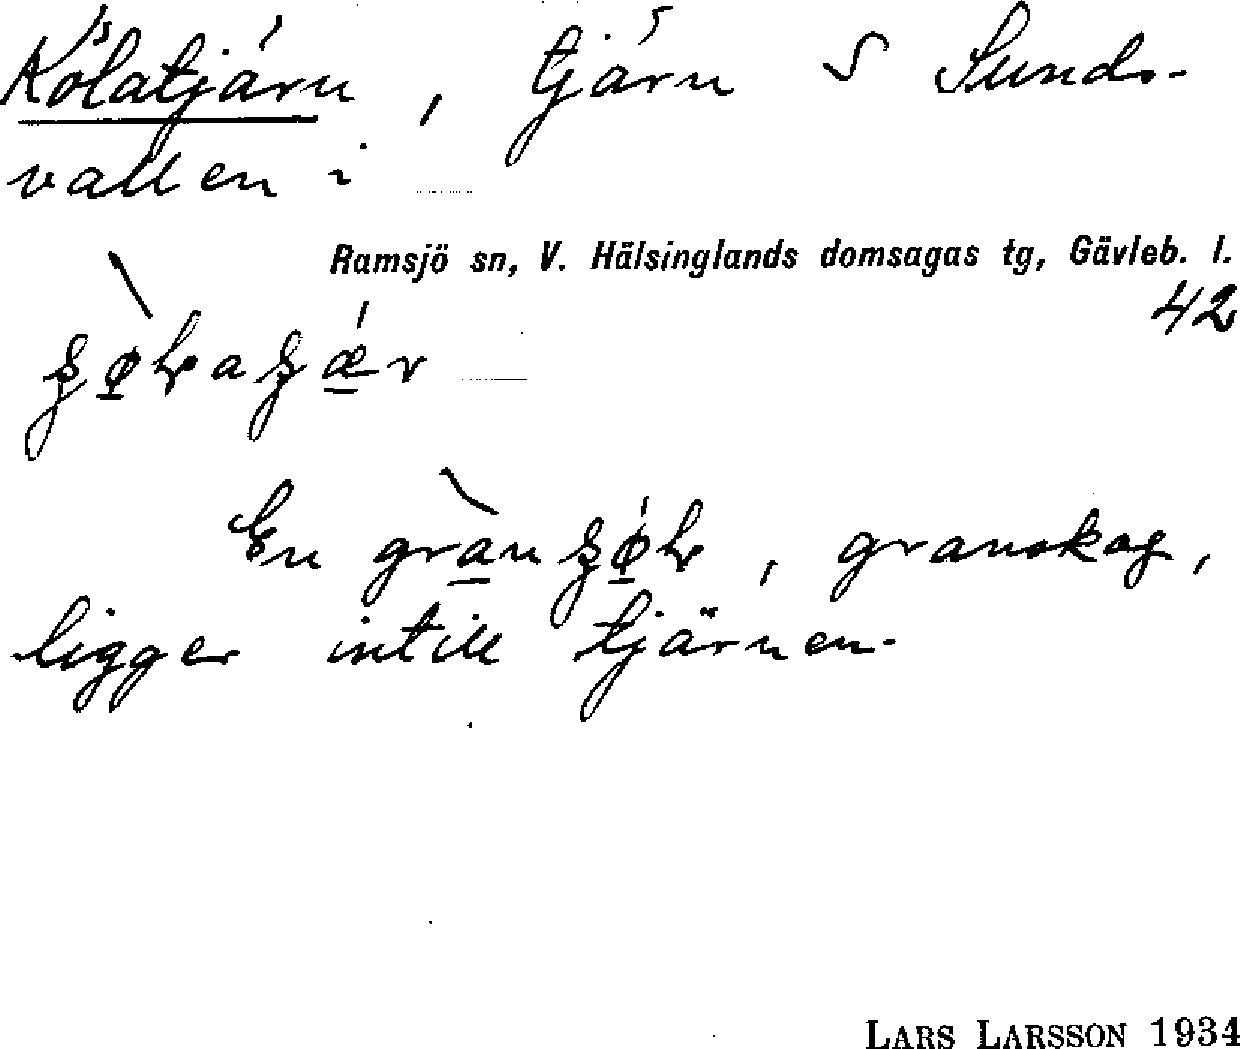 Kölatjärn, tjärn S Sunds-
vallen i
Ramsjö sn, V. Hälsinglands domsagas tg, Gävleb. l.
42
En granskog,
ligger intill tjärnen.
LARS LARSSON 1934